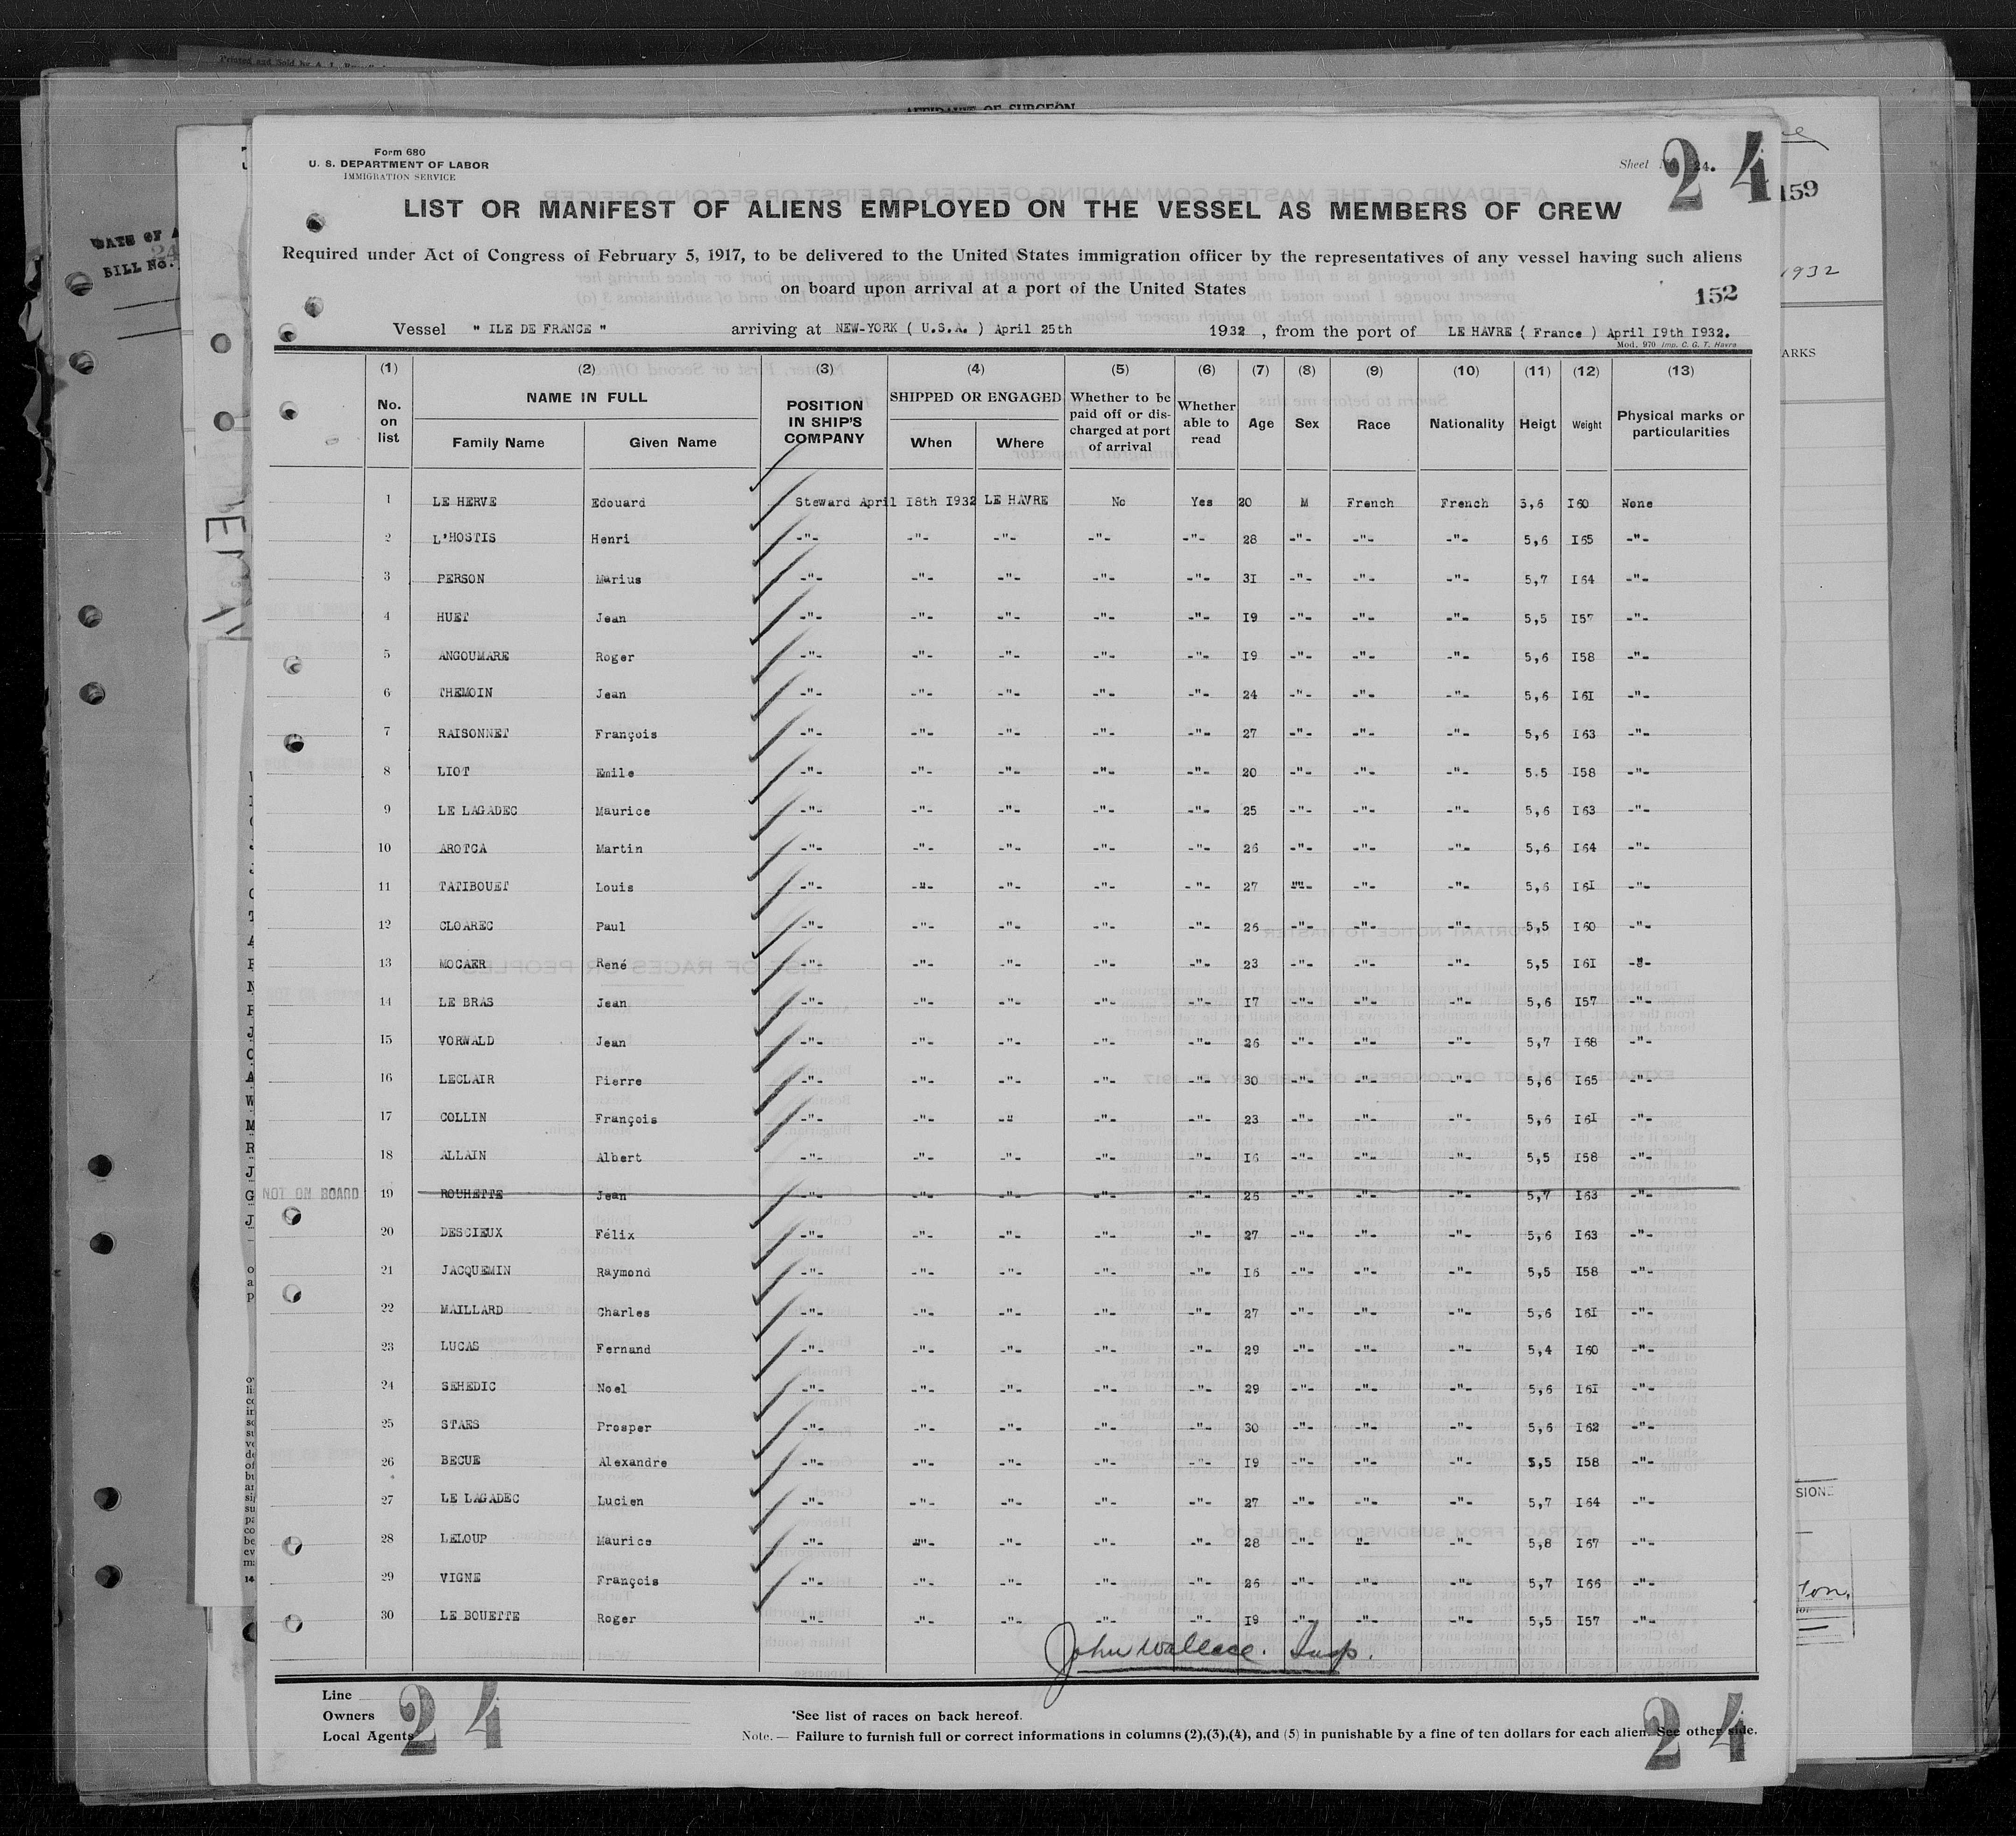 AFFIDAVIT OF SURGEON
Form 680
U. S. DEPARTMENT OF LABOR
IMMIGRATION SERVICE
Sheet
24.
24
159
LIST OR MANIFEST OF ALIENS EMPLOYED ON THE VESSEL AS MEMBERS OF CREW
Required under Act of Congress of February 5, 1917, to be delivered to the United States immigration officer by the representatives of any vessel having such aliens
on board upon arrival at a port of the United States
BILL No.
1932
152
Vessel " ILE DE FRANCE " arriving at NEW-YORK ( U.S.A. ) April 25th 1932 , from the port of LE HAVRE ( France ) April I9th I932.
Mod. 970 Imp. C. G. T. Havre
ARKS
(1) (2) (3) (4) (5) (6) (7) (8) (9) (10) (11) (12) (13)
No. on list NAME IN FULL Family Name Given Name POSITION IN SHIP'S COMPANY SHIPPED OR ENGAGED When Where Whether to be paid off or discharged at port of arrival Whether able to read Age Sex Race Nationality Heigt Weight Physical marks or particularities
1 LE HERVE Edouard Steward April I8th I932 LE HAVRE No Yes 20 M French French 5,6 I60 None
2 L'HOSTIS Henri -"- -"- -"- -"- -"- 28 -"- -"- -"- 5,6 I65 -"-
3 PERSON Marius -"- -"- -"- -"- -"- 3I -"- -"- -"- 5,7 I64 -"-
4 HUET Jean -"- -"- -"- -"- -"- I9 -"- -"- -"- 5,5 I57 -"-
5 ANGOUMARE Roger -"- -"- -"- -"- -"- I9 -"- -"- -"- 5,6 I58 -"-
6 THEMOIN Jean -"- -"- -"- -"- -"- 24 -"- -"- -"- 5,6 I6I -"-
7 RAISONNET François -"- -"- -"- -"- -"- 27 -"- -"- -"- 5,6 I63 -"-
8 LIOT Emile -"- -"- -"- -"- -"- 20 -"- -"- -"- 5.5 I58 -"-
9 LE LAGADEC Maurice -"- -"- -"- -"- -"- 25 -"- -"- -"- 5,6 I63 -"-
10 AROTCA Martin -"- -"- -"- -"- -"- 26 -"- -"- -"- 5,6 I64 -"-
11 TATIBOUET Louis -"- -"- -"- -"- -"- 27 -"- -"- -"- 5,6 I6I -"-
12 CLOAREC Paul -"- -"- -"- -"- -"- 26 -"- -"- -"- 5,5 I60 -"-
13 MOCAER René -"- -"- -"- -"- -"- 23 -"- -"- -"- 5,5 I6I -"-
14 LE BRAS Jean -"- -"- -"- -"- -"- I7 -"- -"- -"- 5,6 I57 -"-
15 VORWALD Jean -"- -"- -"- -"- -"- 26 -"- -"- -"- 5,7 I68 -"-
16 LECLAIR Pierre -"- -"- -"- -"- -"- 30 -"- -"- -"- 5,6 I65 -"-
17 COLLIN François -"- -"- -" -"- -"- 23 -"- -"- -"- 5,6 I6I -"-
18 ALLAIN Albert -"- -"- -"- -"- -"- I6 -"- -"- -"- 5,5 I58 -"-
NOT ON BOARD 19 ROUHETTE Jean -"- -"- -"- -"- -"- 26 -"- -"- -"- 5,7 I63 -"-
20 DESCIEUX Félix -"- -"- -"- -"- -"- 27 -"- -"- -"- 5,6 I63 -"-
21 JACQUEMIN Raymond -"- -"- -"- -"- -"- I6 -"- -"- -"- 5,5 I58 -"-
22 MAILLARD Charles -"- -"- -"- -"- -"- 27 -"- -"- -"- 5,6 I6I -"-
23 LUCAS Fernand -"- -"- -"- -"- -"- 29 -"- -"- -"- 5,4 I60 -"-
24 SEHEDIC Noel -"- -"- -"- -"- -"- 29 -"- -"- -"- 5,6 I6I -"-
25 STAES Prosper -"- -"- -"- -"- -"- 30 -"- -"- -"- 5,6 I62 -"-
26 BECUE Alexandre -"- -"- -"- -"- -"- I9 -"- -"- -"- 5,5 I58 -"-
27 LE LAGADEC Lucien -"- -"- -"- -"- -"- 27 -"- -"- -"- 5,7 I64 -"-
28 LELOUP Maurice -"- -"- -"- -"- -"- 28 -"- "- -"- 5,8 I67 -"-
29 VIGNE François -"- -"- -"- -"- -"- 26 -"- -"- -"- 5,7 I66 -"-
30 LE BOUETTE Roger -"- -"- -"- -"- -"- I9 -"- -"- -"- 5,5 I57 -"-
John Wallace. Insp.
Line
Owners
Local Agents
24
*See list of races on back hereof.
Note. — Failure to furnish full or correct informations in columns (2),(3),(4), and (5) in punishable by a fine of ten dollars for each alien. See other side.
24